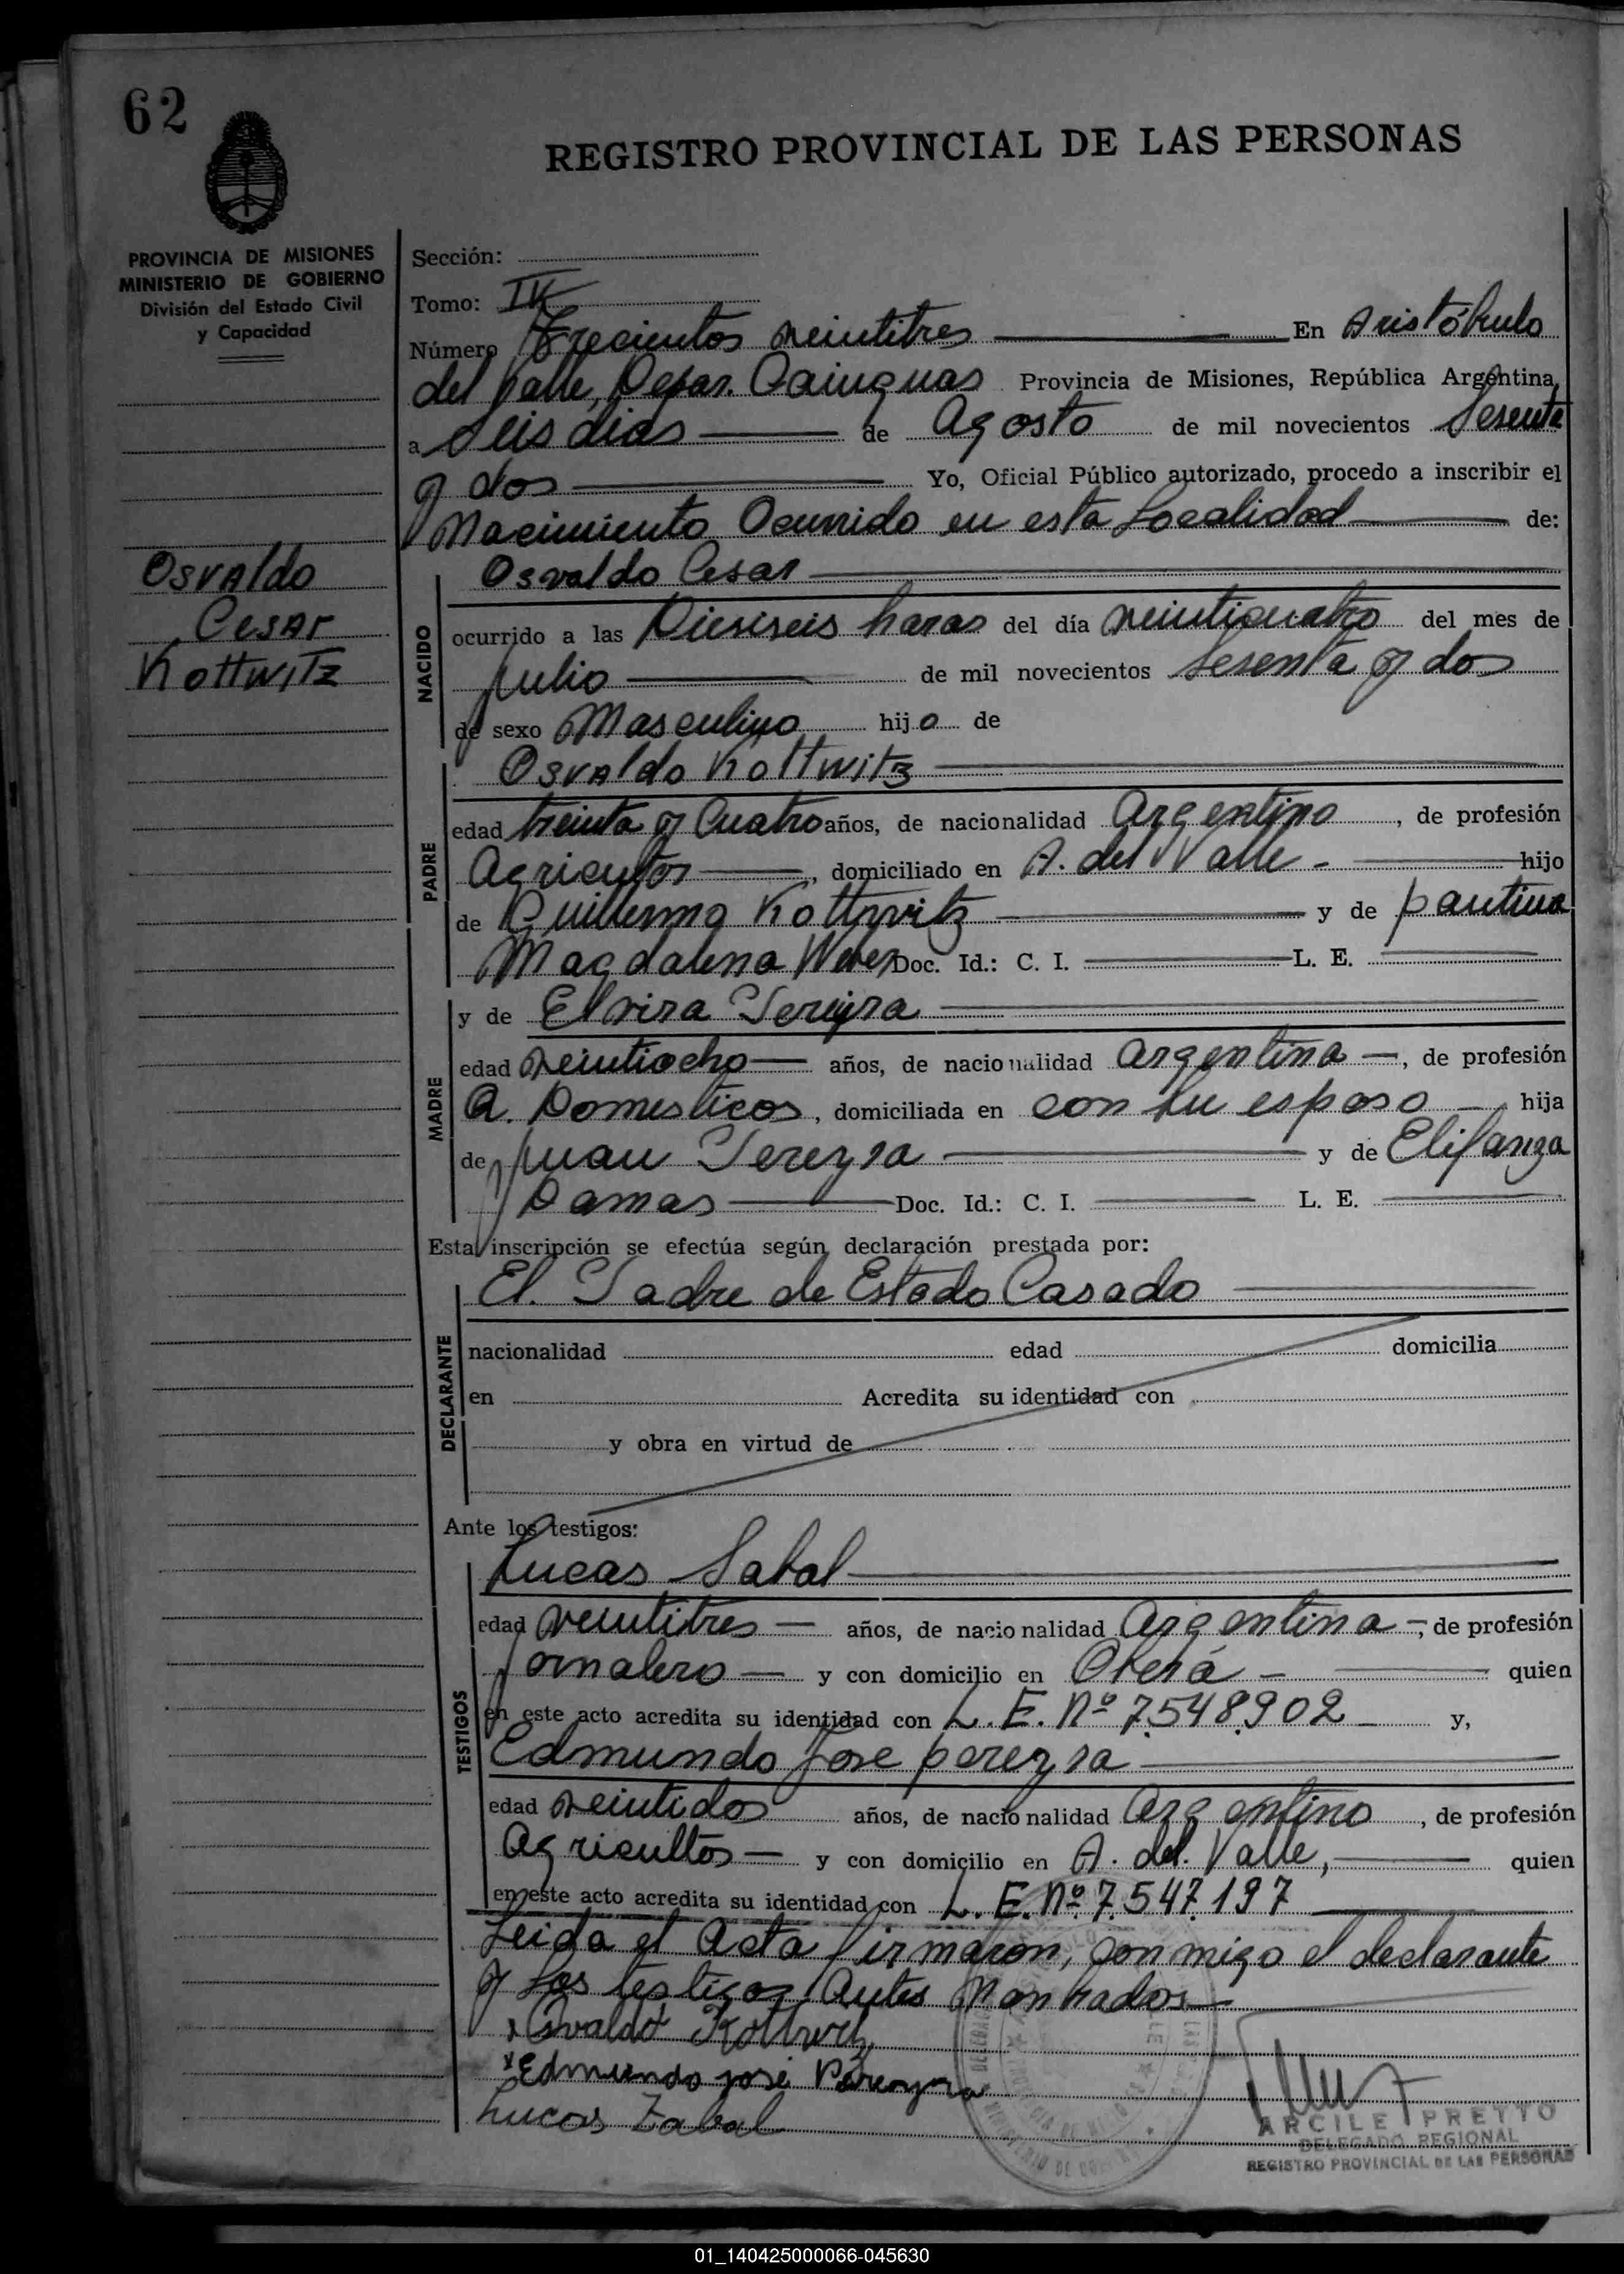 62
REGISTRO PROVINCIAL DE LAS PERSONAS
PROVINCIA DE MISIONES
MINISTERIO DE GOBIERNO
División del Estado Civil
y Capacidad
Sección:
Tomo: IV
Número Trecientos veintitres En Aristóbulo
del Valle, Depar. Cainguas Provincia de Misiones, República Argentina,
a Seis dias de Agosto de mil novecientos Sesenta
y dos Yo, Oficial Público autorizado, procedo a inscribir el
Nacimiento Ocurrido en esta Localidad de:
Osvaldo
Cesar
Kottwitz
NACIDO
Osvaldo Cesar
ocurrido a las Diesiseis haras del día veinticuatro del mes de
Julio de mil novecientos sesenta y dos
de sexo Masculino hijo de
PADRE
Osvaldo Kottwitz
edad treinta y Cuatro años, de nacionalidad Argentino, de profesión
Agricultor, domiciliado en A. del Valle - hijo
de Guillermo Kottwitz y de paulina
Magdalena Doc. Id.: C. I. L. E.
MADRE
y de Elvira Pereyra
edad veintiocho años, de nacionalidad Argentina, de profesión
Q. Domesticos, domiciliada en con su esposo hija
de Juan Pereyra y de Elifanza
Damas Doc. Id.: C. I. L. E.
Esta inscripción se efectúa según declaración prestada por:
DECLARANTE
El. Padre de Estado Casado
nacionalidad edad domicilia
en Acredita su identidad con
y obra en virtud de
Ante los testigos:
TESTIGOS
Lucas Sabal
edad veintitres años, de nacionalidad Argentina, de profesión
Jornalero y con domicilio en Oberá - quien
en este acto acredita su identidad con L. E. Nº 7.548.902 y,
Edmundo Jose pereyra
edad veintidos años, de nacionalidad Argentino, de profesión
Agricultor y con domicilio en A. del. Valle, quien
en este acto acredita su identidad con L. E. Nº 7.547.197
Leida el Acta firmaron, conmigo el declarante
y Los testigos Antes Monbrados
x Osvaldo Kottwitz
x Edmundo José Pereyra
Lucas Zabal
ARCILE PRETTO
DELEGADO REGIONAL
REGISTRO PROVINCIAL DE LAS PERSONAS
01_140425000066-045630